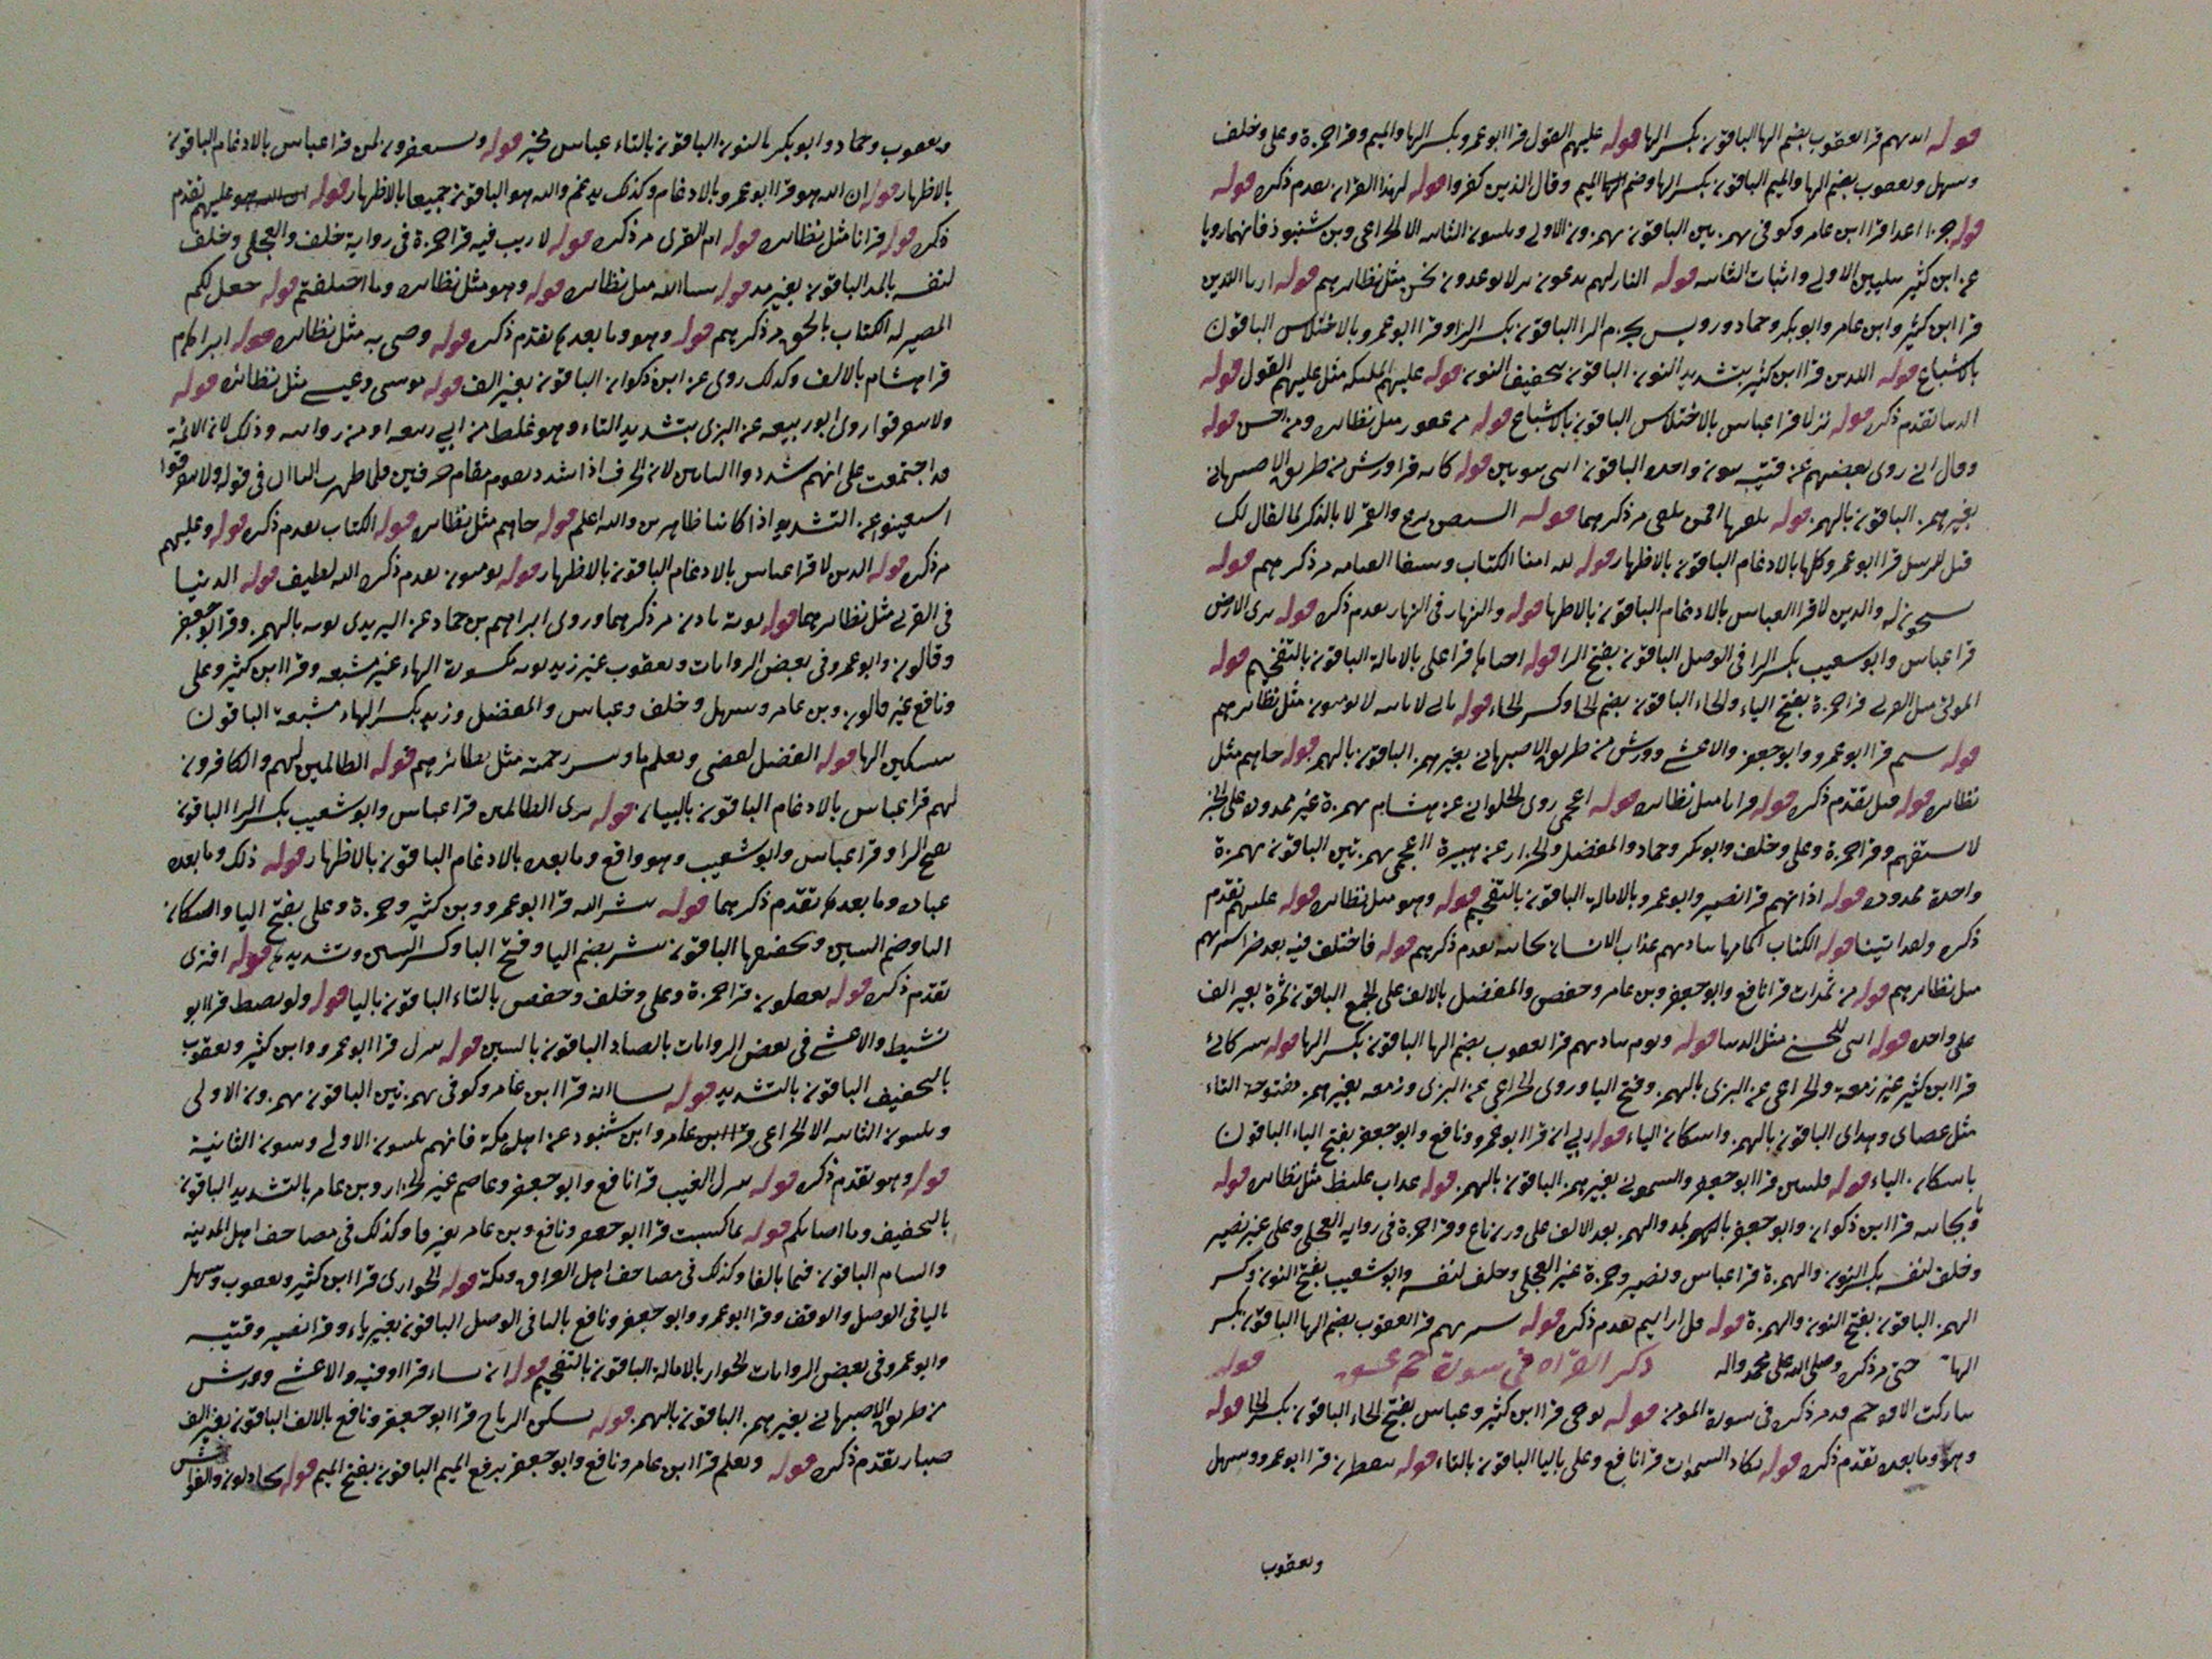 قوله ايديهم قرا يعقوب بضم الها الباقون بكسر الها قوله عليهم القول قرا ابو عمرو بكسر الها والميم وقرا حمزة وعلى وخلف
وسهل ويعقوب بضم الها والميم الباقون بكسر الها وضم الميم وقال الذين كفروا قوله لهذا القران تقدم ذكره قوله
قوله جزا اعدا قرا ابن عامر وكوفى بهمزتين الباقون بهمزة الاولى وتليين الثانيه الا الخزاعى وبن شنبوذ فانهما رويا
عن ابن كثير تليين الاولى واثبات الثانيه قوله النار لهم مثل نظائرهم قوله ارنا اللذين
قرا ابن كثير وابن عامر وابو بكر وحماد ورويس بجزم الرا الباقون بكسر الرا وقرا ابو عمرو بالاختلاس الباقون
بالاشباع قوله اللذين قرا ابن كثير بتشديد النون الباقون بتخفيف النون قوله عليهم الملئكه مثل عليهم القول قوله
الدنيا تقدم ذكره قوله نزلا قرا عباس بالاختلاس الباقون بالاشباع قوله من غفور مثل نظائره ومن احسن قوله
وقال اننى روى بعضهم عن قتيبه بنون واحده الباقون اننى بنونين قوله كانه قرا ورش من طريق الاصبهانى
بغير همز الباقون بالهمز قوله يلقيها افمن يلقى مر ذكرهما قوله بالذكر لما يقال لك
قيل للرسل قرا ابو عمرو وكلها بالادغام الباقون بالاظهار قوله مر ذكرهم قوله
يسبحون له والذين لا قرا العباس بالادغام الباقون بالاظهار قوله والنهار فى النهار تقدم ذكره قوله ترى الارض
قرا عباس وابو شعيب بكسر الرا فى الوصل الباقون بفتح الرا قوله احياها قرا على بالامالة الباقون بالتفخيم قوله
الموتى مثل القربى قرا حمزة بفتح الياء والحاء الباقون بضم اليا وكسر الحاء قوله لا يومنون مثل نظائرهم
قوله شيتم قرا ابو عمرو وابو جعفر والاعشى وورش من طريق الاصبهانى بغير همز الباقون بالهمز قوله جاهم مثل
نظائره قوله قيل تقدم ذكره قوله قرانا مثل نظائره قوله اعجمى روى الحلوانى عن هشام بهمزة غير ممدودة على الخبر
لا ستفهم وقرا حمزة وعلى وخلف وابو بكر وحماد والمفضل والخزاز عن هبيرة ااعجمى بهمزتين الباقون بهمزة
واحدة ممدودة قوله اذانهم قرا نصير وابو عمرو بالامالة الباقون بالتفخيم قوله وهو مثل نظائره قوله عليهم تقدم
ذكره ولقد اتينا قوله الكتاب تقدم ذكرهم قوله فاختلف فيه
مثل نظائرهم قوله من ثمرات قرا نافع وابو جعفر وبن عامر وحفص والمفضل بالالف على الجمع الباقون ثمرة بغير الف
على واحده قوله انثى للحسنى مثل الدنيا قوله ويوم يناديهم قرا يعقوب بضم الها الباقون بكسر الها قوله شركائى
قرا ابن كثير غير زمعة والخزاعى عن البزى بالهمز وفتح اليا وروى الخزاعى عن البزى وزمعه بغير همز مفتوحة الياء
مثل عصاى وهداى الباقون بالهمز واسكان الياء قوله ربى ان قرا ابو عمرو ونافع وابو جعفر بفتح الياء الباقون
باسكان الياء قوله فلننبئن قرا ابو جعفر والشمونى بغير همز الباقون بالهمز قوله عذاب غليظ مثل نظائره قوله
ونا بجانبه قرا ابن ذكوان وابو جعفر بالمد والهمز بعد الالف على وزن ناع وقرا حمزة فى رواية العجلى وعلى غير نصير
وخلف لنفسه بكسر النون والهمزة قرا عباس ونصير وحمزة غير العجلى وخلف لنفسه وابو شعيب بفتح النون وكسر
الهمز الباقون بفتح النون والهمزة قوله قل ارايتم تقدم ذكره قوله سنريهم قرا يعقوب بضم الها الباقون بكسر
الها حتى مر ذكره وصلى الله على محمد واله ذكر القراه فى سورة حم عسق قوله
قد مر ذكره فى سورة المومن قوله يوحى قرا ابن كثير وعباس بفتح الحاء الباقون بكسر الحا قوله
وهو وما بعده تقدم ذكره قوله تكاد السموات قرا نافع وعلى باليا الباقون بالتاء قوله ينفطرن قرا ابو عمرو وسهل
ويعقوب
ويعقوب وحماد وابو بكر بالنون الباقون بالتاء عباس مخير قوله ويستغفرون لمن قرا عباس بالادغام الباقون
بالاظهار قوله ان الله هو قرا ابو عمرو بالادغام وكذلك يدغم والله هو الباقون جميعا بالاظهار قوله عليهم تقدم
ذكره قوله قرانا مثل نظائره قوله ام القرى مر ذكره قوله لا ريب فيه قرا حمزة فى رواية خلف والعجلى وخلف
لنفسه بالمد الباقون بغير مد قوله مثل نظائره قوله وهو مثل نظائره وما اختلفتم قوله جعل لكم
المصير له الكتاب بالحق مر ذكرهم قوله وهو وما بعده تقدم ذكره قوله وصى به مثل نظائره قوله ابراهام
قرا هشام بالالف وكذلك روى عن ابن ذكوان الباقون بغير الف قوله موسى وعيسى مثل نظائره قوله
ولا تتفرقوا روى ابو ربيعه عن البزى بتشديد التاء وهو غلط من ابى ربيعه او من رواته وذلك لان الائمة
قد اجتمعت على انهم شددوا التاءين لان الحرف اذا شدد يقوم مقام حرفين فلما ظهرت التاان فى قوله ولا تتفرقوا
استغنوا عن التشديد اذا كانتا ظاهرتين والله اعلم قوله جاهم مثل نظائره قوله الكتاب تقدم ذكره قوله وعليهم
مر ذكره قوله الذين لا قرا عباس بالادغام الباقون بالاظهار قوله يومنون تقدم ذكره الله لطيف قوله الدنيا
فى القربى مثل نظائرهما قوله نوته ياذن مر ذكرهما وروى ابراهيم بن حماد عن اليزيدى نوته بالهمز وقرا ابو جعفر
وقالون وابو عمرو فى بعض الروايات ويعقوب غير زيد نوته مكسورة الهاء غير مشبعه وقرا ابن كثير وعلى
ونافع غير قالون وبن عامر وسهل وخلف وعباس والمفضل وزيد بكسر الهاء مشبعة الباقون
بتسكين الها قوله الفضل لقضى ويعلم ما وينشر رحمته مثل نظائرهم قوله الظالمين لهم والكافرون
لهم قرا عباس بالادغام الباقون بالبيان قوله ترى الظالمين قرا عباس وابو شعيب بكسر الرا الباقون
بفتح الرا وقرا عباس وابو شعيب وهو واقع وما بعده بالادغام الباقون بالاظهار قوله ذلك وما بعده
عباده وما بعده تقدم ذكرهما قوله يبشر الله قرا ابو عمرو وبن كثير وحمزة وعلى بفتح اليا واسكان
البا وضم الشين وتخفيفها الباقون يبشر بضم اليا وفتح البا وكسر الشين وتشديدها قوله افترى
تقدم ذكره قوله يفعلون قرا حمزة وعلى وخلف وحفص بالتاء الباقون باليا قوله ولو بسط قرا ابو
نشيط والاعشى فى بعض الروايات بالصاد الباقون بالسين قوله ينزل قرا ابو عمرو وابن كثير ويعقوب
بالتخفيف الباقون بالتشديد قوله يشا انه قرا ابن عامر وكوفى بهمزتين الباقون بهمزة الاولى
وتليين الثانيه الا الخزاعى وابن شنبوذ عن اهل مكة فانهم بتليين الاولى وتبيين الثانية
قوله وهو تقدم ذكره قوله ينزل الغيث قرا نافع وابو جعفر وعاصم غير الخزاز وبن عامر بالتشديد الباقون
بالتخفيف وما اصابكم قوله بما كسبت قرا ابو جعفر ونافع وبن عامر بغير فا وكذلك فى مصاحف اهل المدينه
والشام الباقون فبما بالفا وكذلك فى مصاحف اهل العراق ومكة قوله الجوارى قرا ابن كثير ويعقوب وسهل
باليا فى الوصل والوقف وقرا ابو عمرو وابو جعفر ونافع باليا فى الوصل الباقون بغير ياء وقرا نصير وقتيبه
وابو عمرو فى بعض الروايات الجوار بالامالة الباقون بالتفخيم قوله ان يشاء قرا اوقيه والاعشى وورش
من طريق الاصبهانى بغير همز الباقون بالهمز قوله يسكن الرياح قرا ابو جعفر ونافع بالالف الباقون بغير الف
صبار تقدم ذكره قوله ويعلم قرا ابن عامر ونافع وابو جعفر برفع الميم الباقون بفتح الميم قوله يجادلون والفواحش